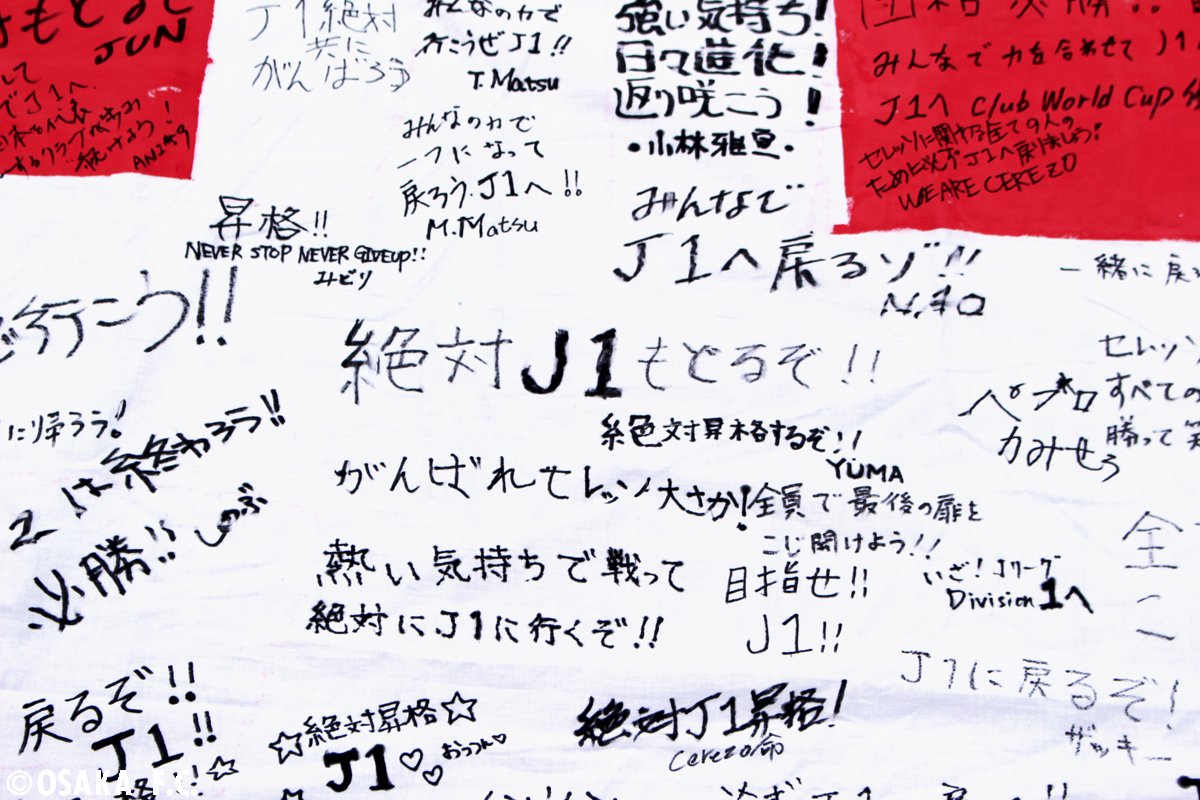 もどると
JUN
して
でJ1へ
ANI
J1絶対
共に
がんばろう
みんなの力で
行こうぜJ1!!
T.Matsu
強い気持ち!
日々進化!
返り咲こう!
・小林雅亘・
みんなで力を合わせてJ1
J1へ Club World Cup
セレッソに関わる全ての人の
ためにも J1へ戻りましょう!
WE ARE CEREZO
みんなの力で
一つになって
戻ろう、J1へ!!
M.Matsu
昇格!!
NEVER STOP NEVER GIVEUP!!
みどり
みんなで
J1へ戻るゾ!!
一緒に戻
行こう!!
絶対J1もどるぞ!!
セレッソ
すべての
勝って笑
に帰ろう!
絶対昇格するぞ!!
YUMA
J2は終わろう!!
必勝!! しのぶ
がんばれセレッソ大さか!
全員で最後の扉を
こじ開けよう!!
熱い気持ちで戦って
絶対にJ1に行くぞ!!
目指せ!!
J1!!
いざ!Jリーグ
Division1へ
全
戻るぞ!!
J1!!
☆絶対昇格☆
J1♡♡
おっつん♡
絶対J1昇格!
cerezo命
J1に戻るぞ!
ザッキー
©OSAKA.F.C.